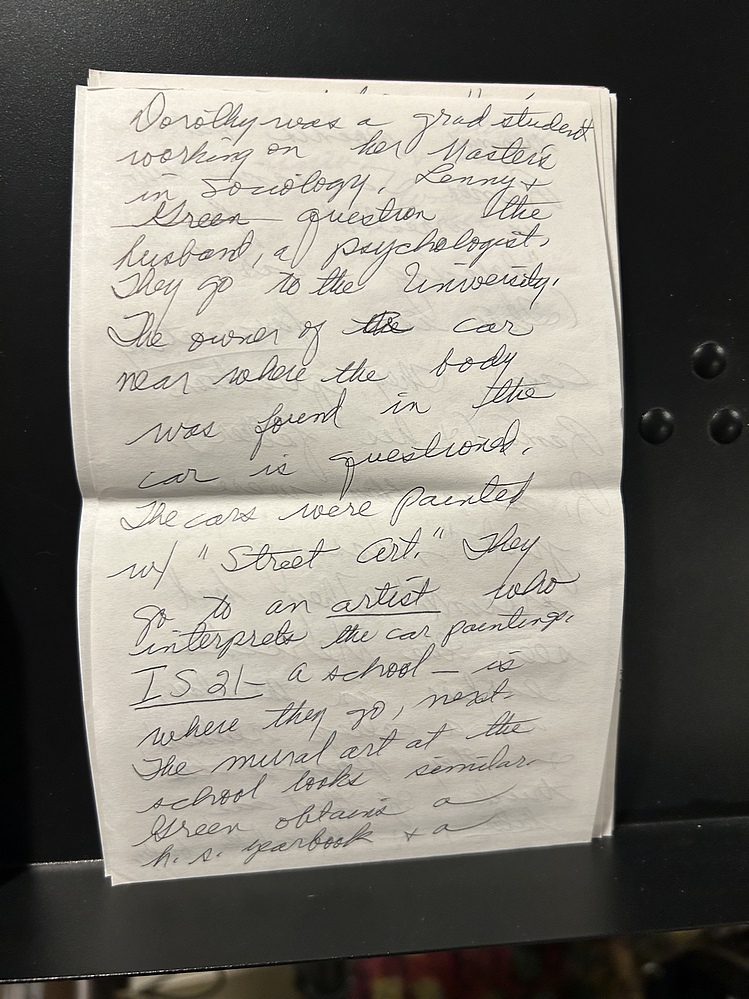 Dorothy was a grad student
working on her Masters
in Sociology. Lenny +
Green question the
husband, a psychologist.
They go to the University.
The owner of the car
near where the body
was found in the
car is questioned.
The cars were painted
w/ "Street Art." They
go to an artist who
interprets the car paintings.
IS 21 - a school - is
where they go, next.
The mural art at the
school looks similar.
Green obtains a
h. s. yearbook + a